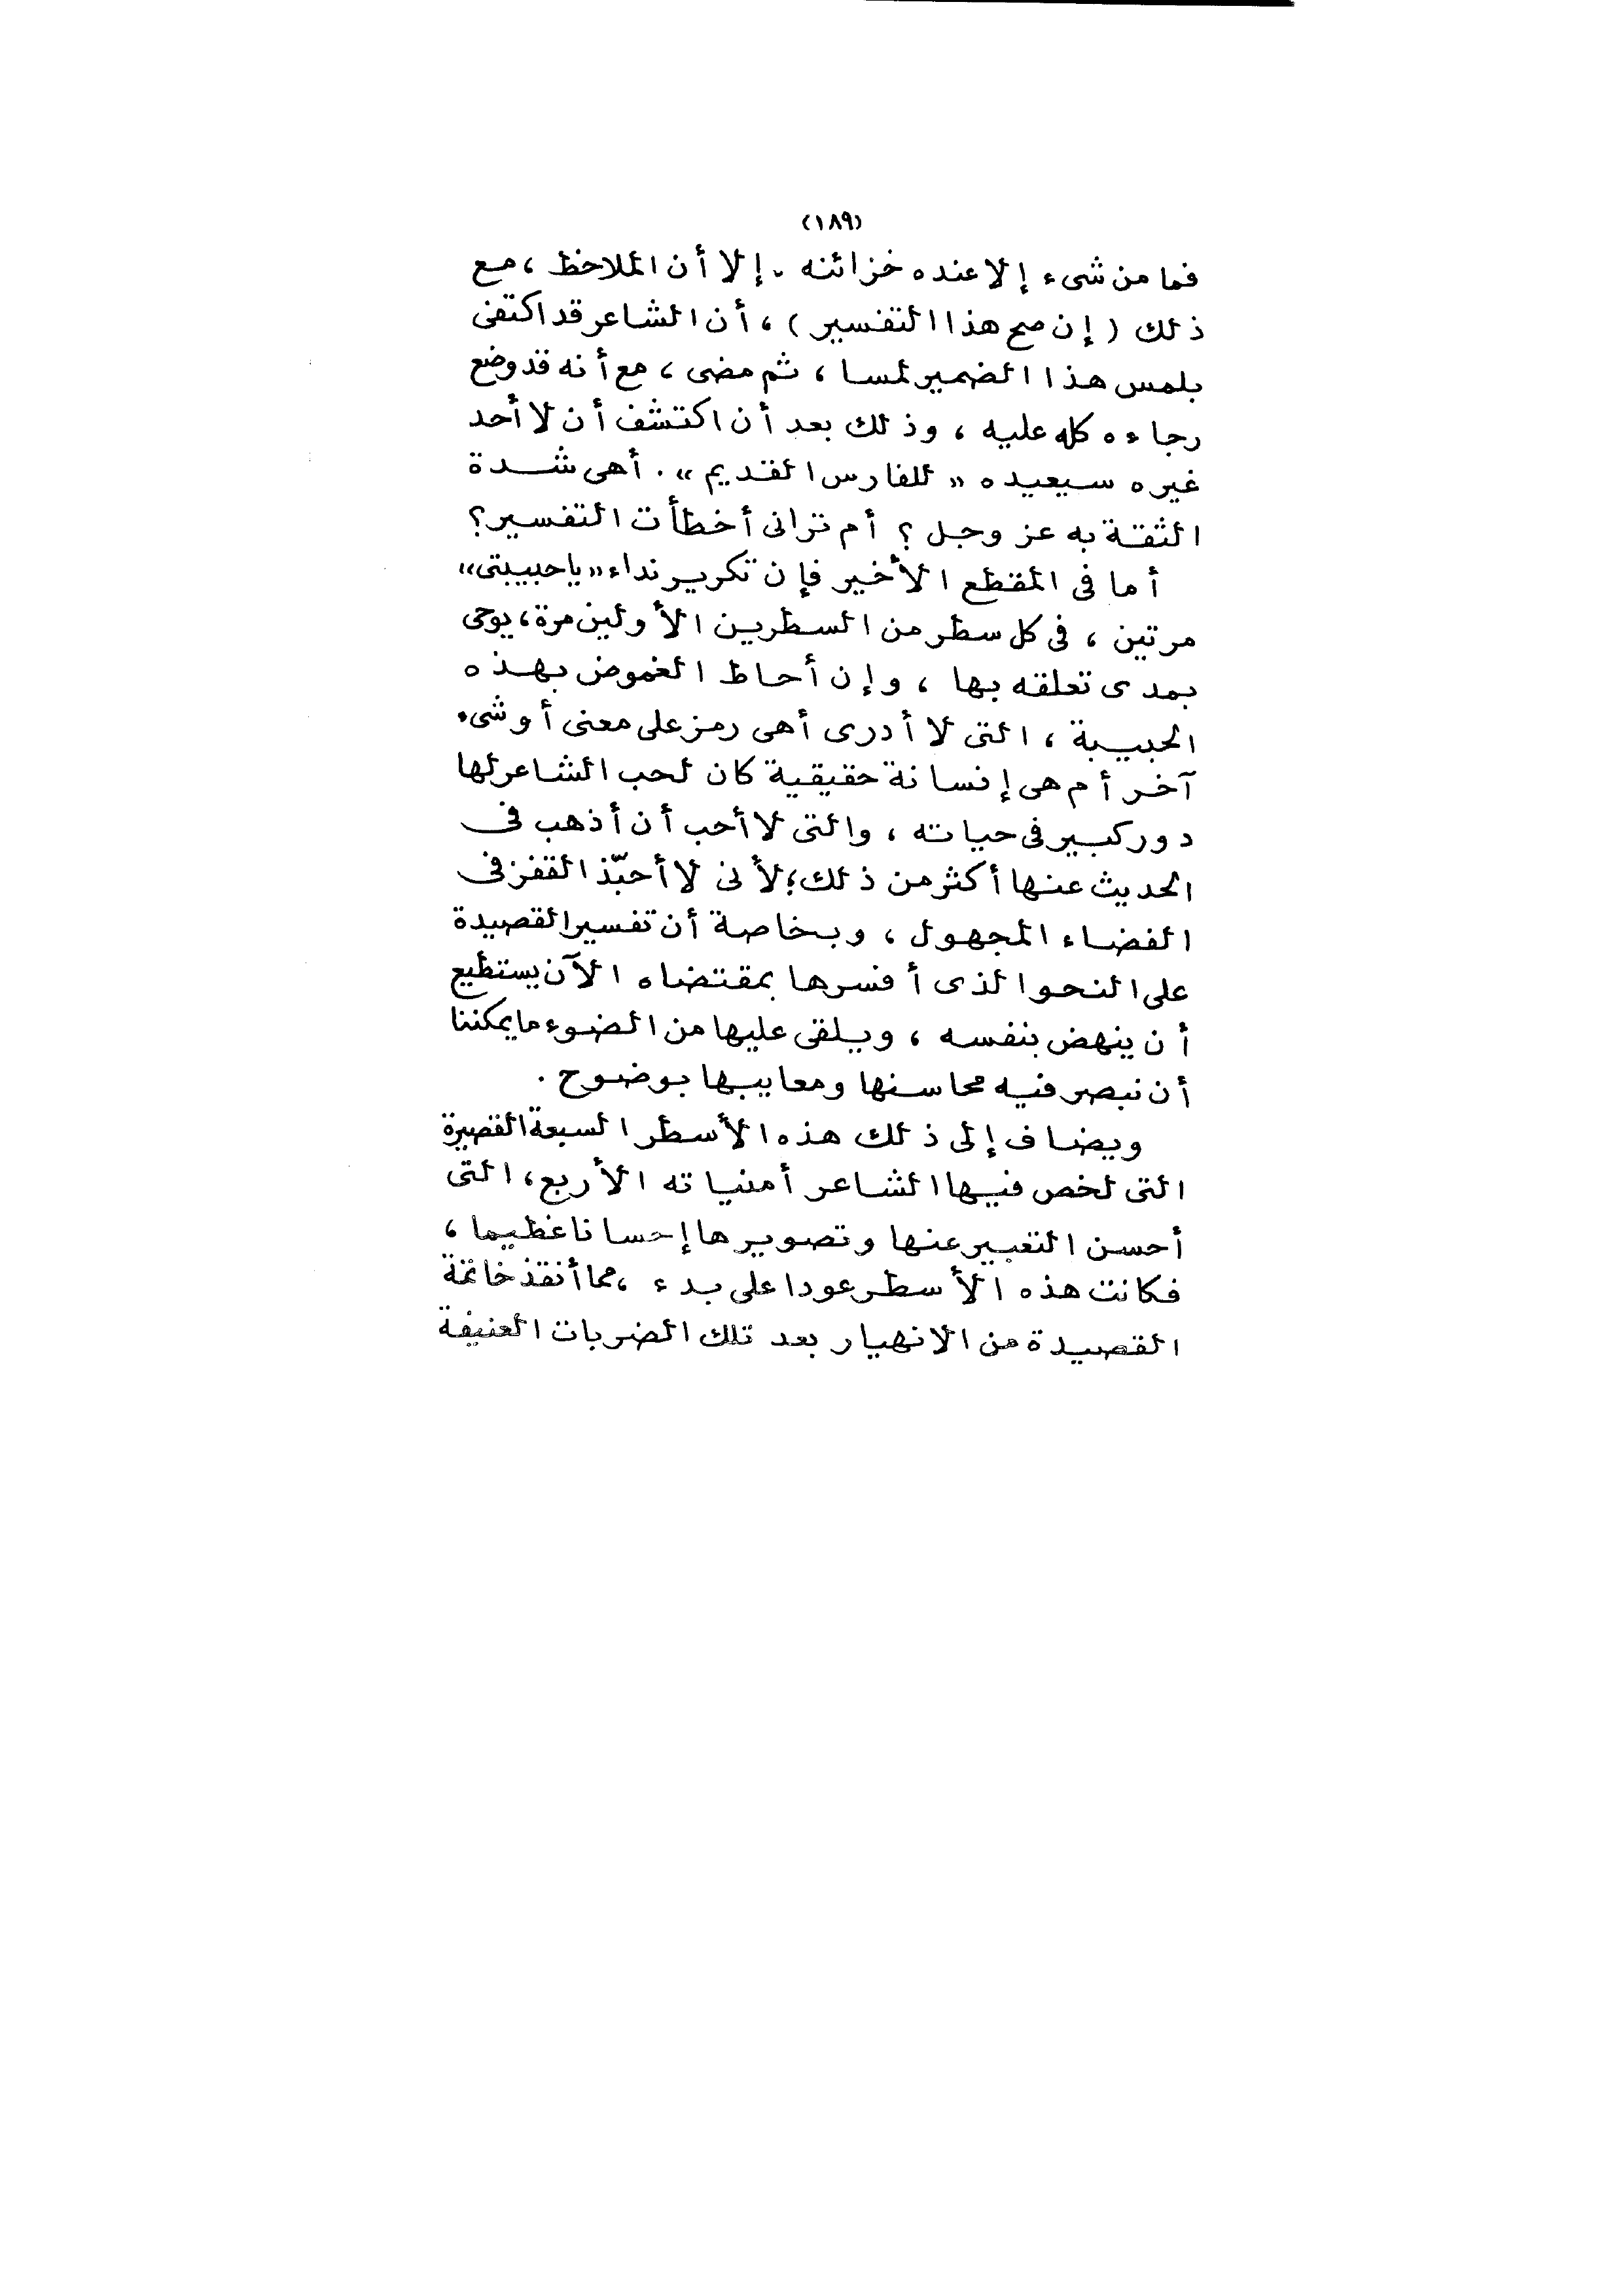 (١٨٩)
فما من شىء إلا عنده خزائنه . إلا أن الملاحظ ، مع
ذلك ( إن صح هذا التفسير ) ، أن الشاعر قد اكتفى
بلمس هذا الضمير لمسا ، ثم مضى ، مع أنه قد وضع
رجاءه كله عليه ، وذلك بعد أن اكتشف أن لا أحد
غيره سيعيده « للفارس القديم » . أهى شدة
الثقة به عز وجل ؟ أم ترانى أخطأت التفسير ؟
أما فى المقطع الأخير فإن تكرير نداء « يا حبيبتى »
مرتين ، فى كل سطر من السطرين الأولين مرة ، يوحى
بمدى تعلقه بها ، وإن أحاط الغموض بهذه
الحبيبة ، التى لا أدرى أهى رمز على معنى أو شىء
آخر أم هى إنسانة حقيقية كان لحب الشاعر لها
دور كبير فى حياته ، والتى لا أحب أن أذهب فى
الحديث عنها أكثر من ذلك ؛ لأنى لا أحبّذ القفز فى
الفضاء المجهول ، وبخاصة أن تفسير القصيدة
على النحو الذى أفسرها بمقتضاه الآن يستطيع
أن ينهض بنفسه ، ويلقى عليها من الضوء ما يمكننا
أن نبصر فيه محاسنها ومعاييبها بوضوح .
ويضاف إلى ذلك هذه الأسطر السبعة القصيرة
التى لخص فيها الشاعر أمنياته الأربع ، التى
أحسن التعبير عنها وتصويرها إحسانا عظيما ،
فكانت هذه الأسطر عودا على بدء ، مما أنقذ خاتمة
القصيدة من الانهيار بعد تلك الضربات العنيفة